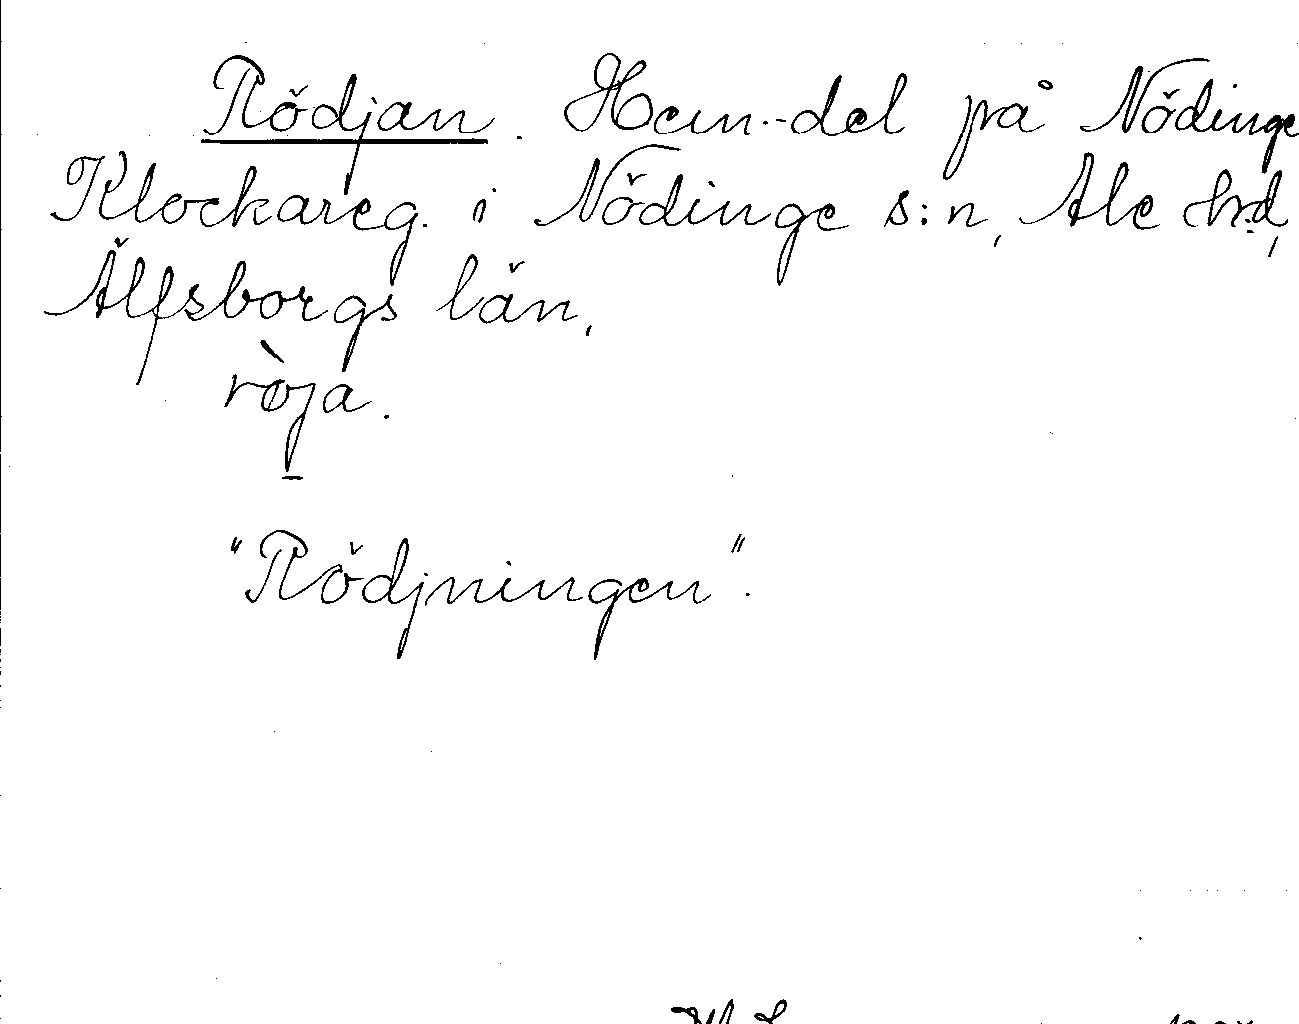 Rödjan. Hem.-del på Nödinge
Klockareg. i Nödinge s:n, Ale hd,
Älfsborgs län.
ròja.
"Rödjningen".